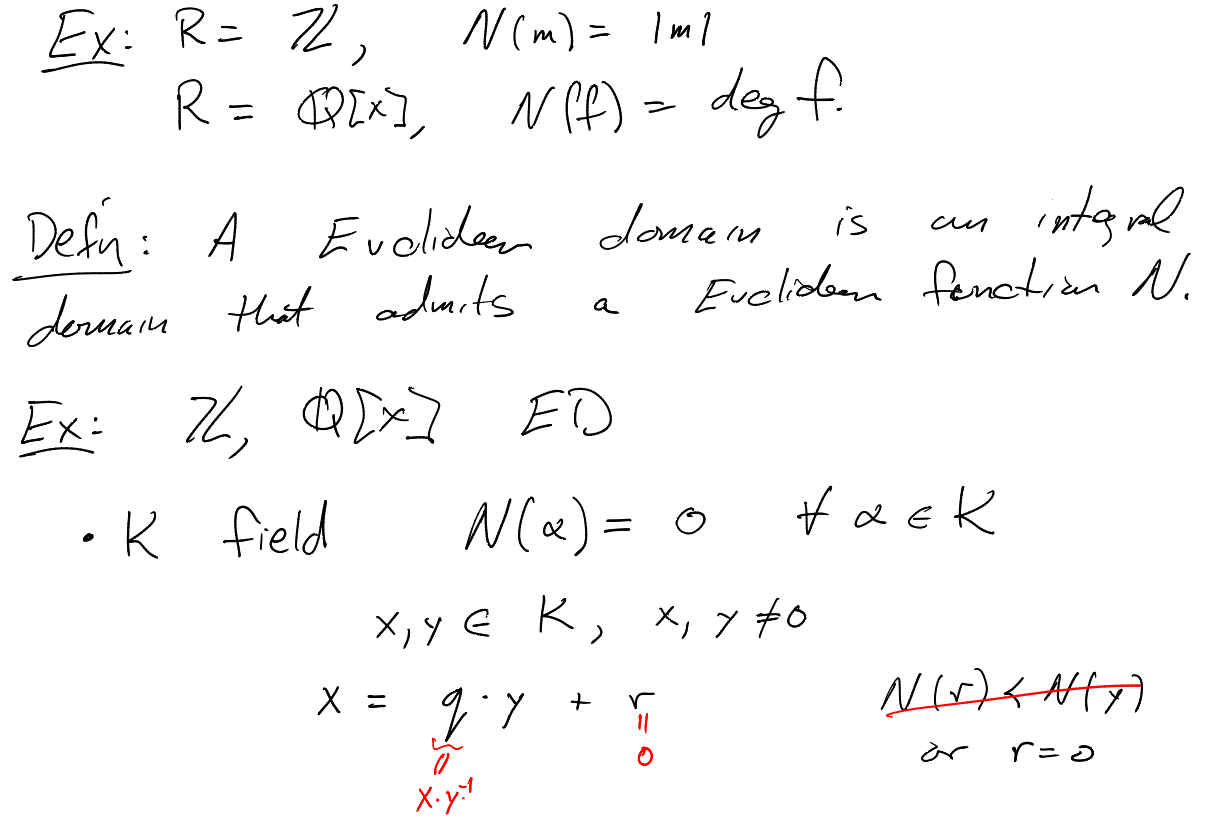 Ex: R = ℤ, N(m) = |m|
R = ℚ[x], N(f) = deg f.
Defn: A Euclidean domain is an integral
domain that admits a Euclidean function N.
Ex: ℤ, ℚ[x] ED
• K field N(α) = 0 ∀ α ∈ K
x, y ∈ K, x, y ≠ 0
x = q · y + r N(r) < N(y)
= 0 or r = 0
x·y⁻¹